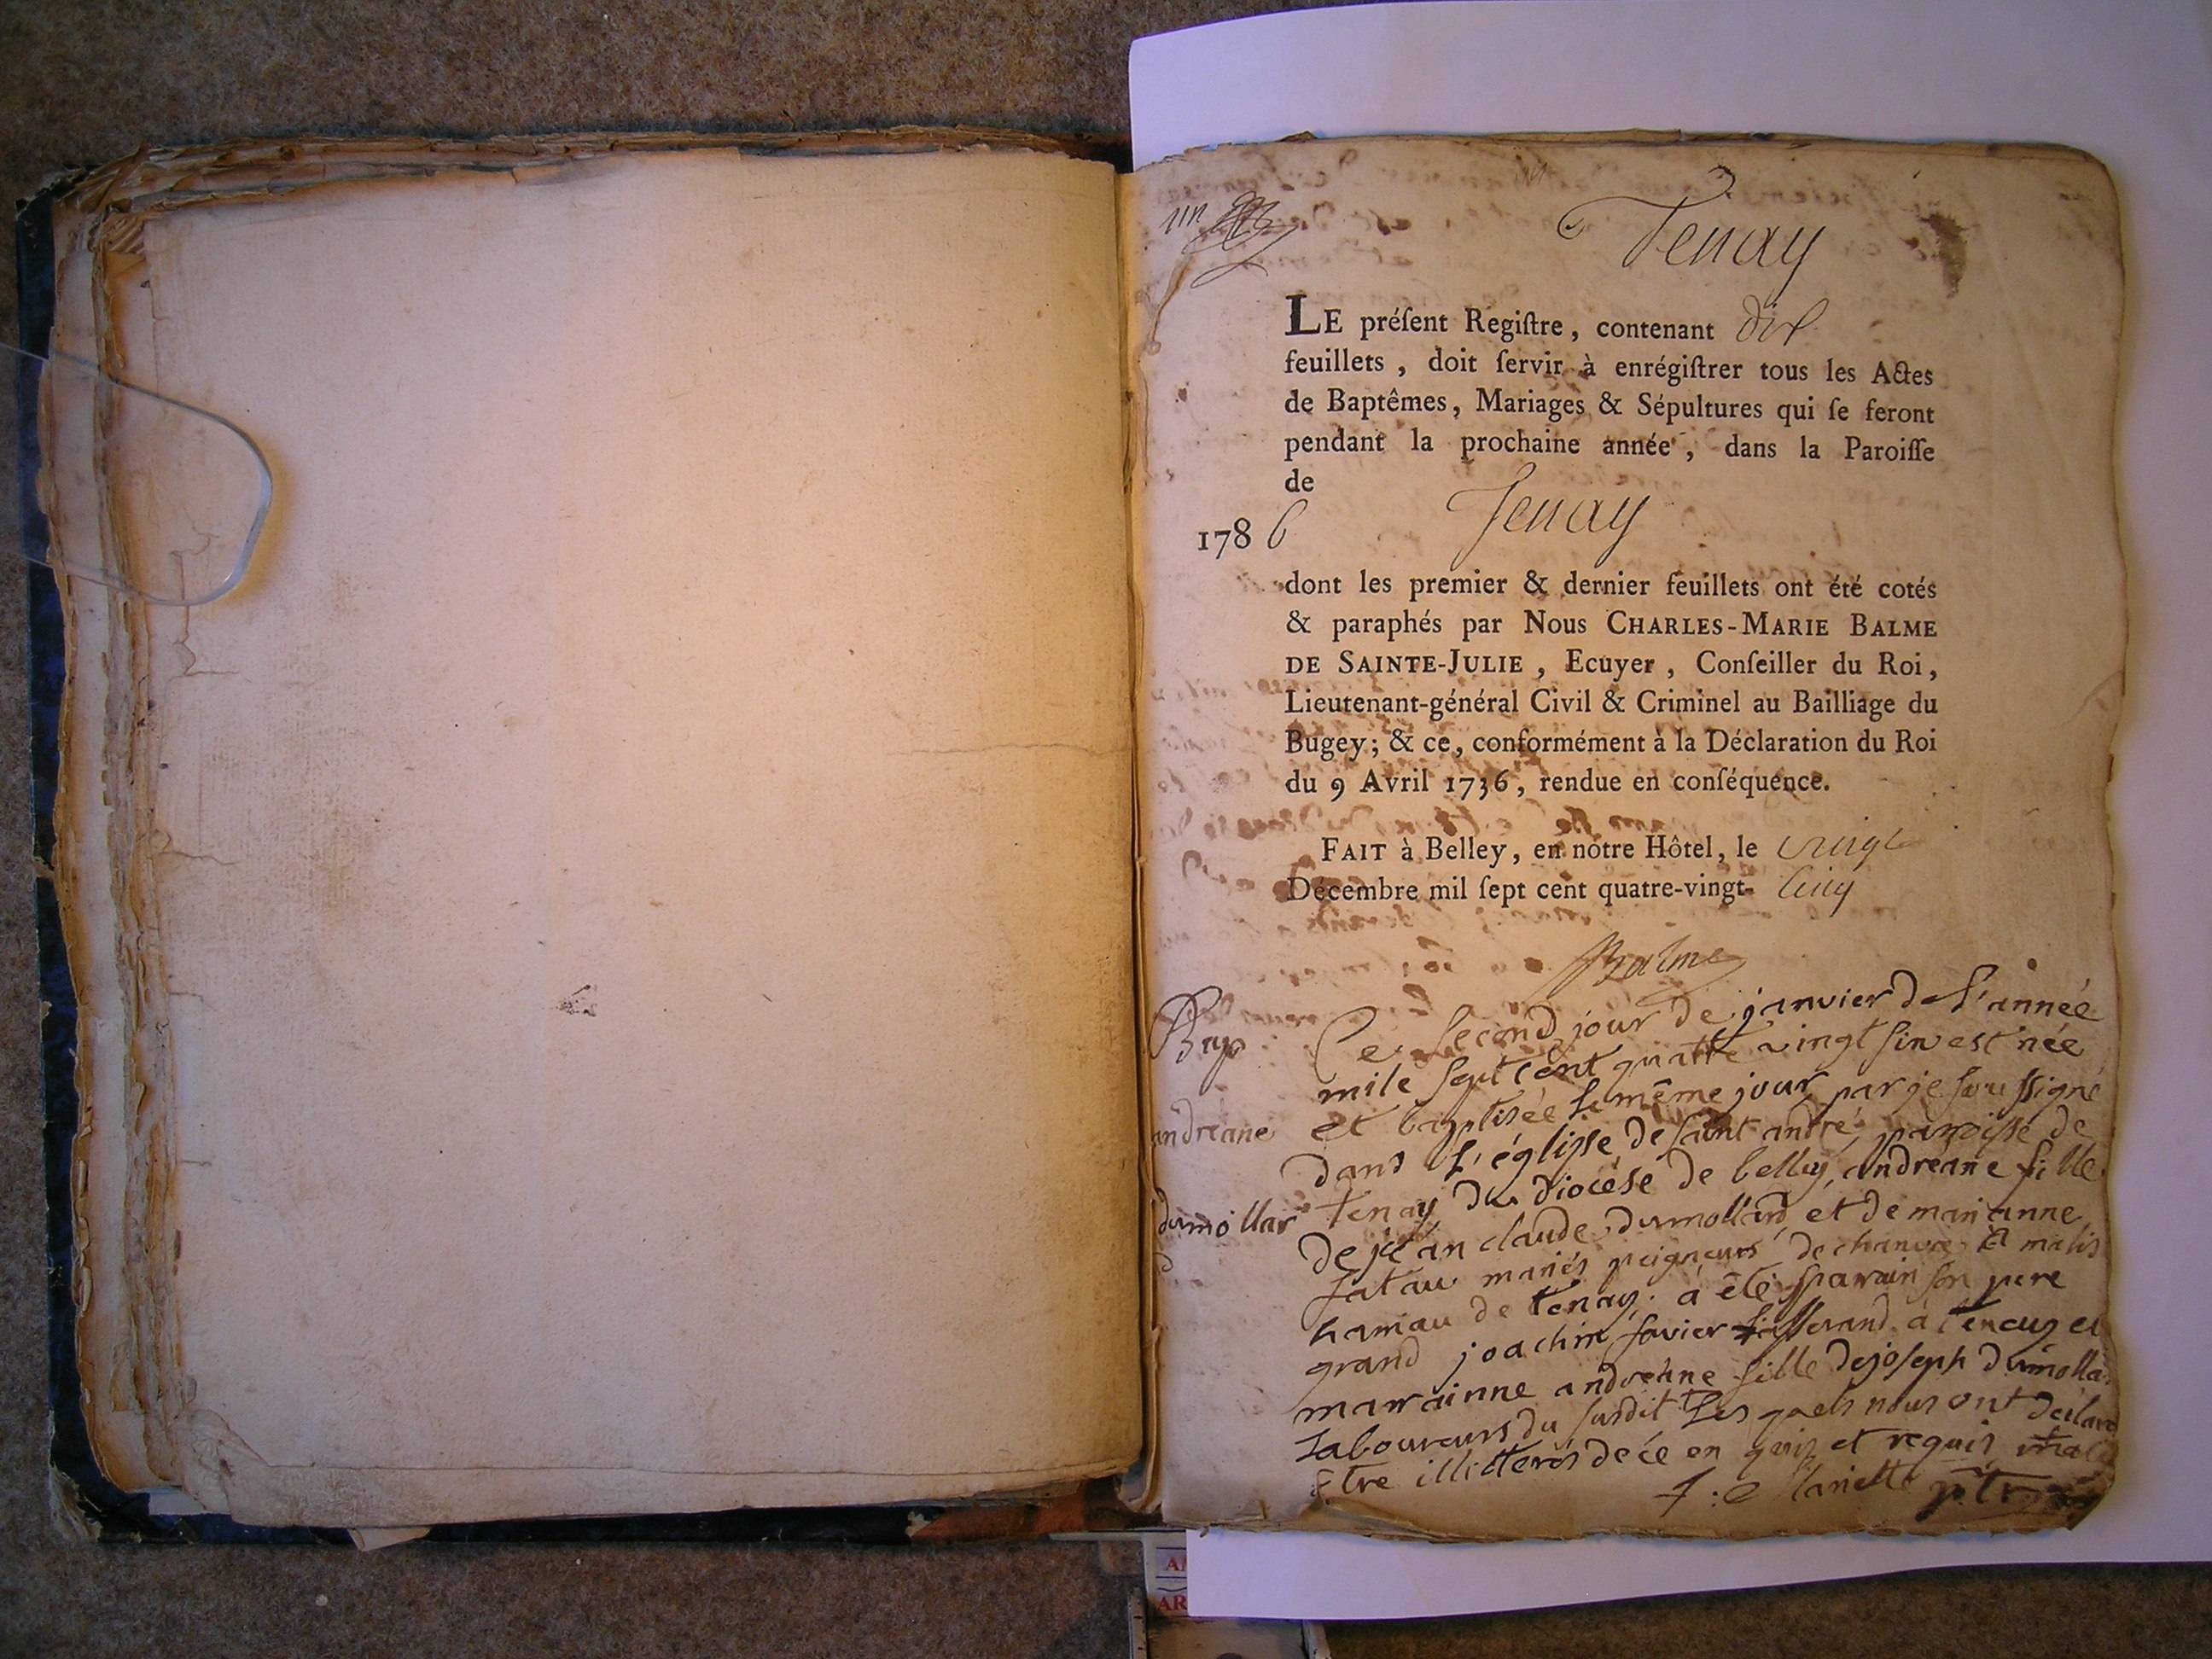 un
Tenay
LE préſent Regiſtre, contenant dix
feuillets, doit ſervir à enrégiſtrer tous les Actes
de Baptêmes, Mariages & Sépultures qui ſe feront
pendant la prochaine année, dans la Paroiſſe
de
Tenay
1786
dont les premier & dernier feuillets ont été cotés
& paraphés par Nous CHARLES-MARIE BALME
DE SAINTE-JULIE, Ecuyer, Conſeiller du Roi,
Lieutenant-général Civil & Criminel au Bailliage du
Bugey; & ce, conformément à la Déclaration du Roi
du 9 Avril 1736, rendue en conſéquence.
FAIT à Belley, en notre Hôtel, le vingt
Décembre mil ſept cent quatre-vingt-cinq
Balme
Bap
andréane
dumollar
d
Ce second jour de janvier de l'année
mile sept cent quattre vingt six est née
et baptisée le même jour par je soussigné
dans l'églisse de saint andré paroisse de
tenay du diocèse de belley, andréane fille
de jean claude dumollard et de marianne
mariés peigneurs de chanvre à malis
hamau de tenay. a été parrain son pere
grand joachin favier tisserand à tenay et
marrainne andréane fille de joseph dumollar
laboureurs du susdit les quels nous ont déclaré
Etre illitterés de ce en quis et requis
ptre
AR